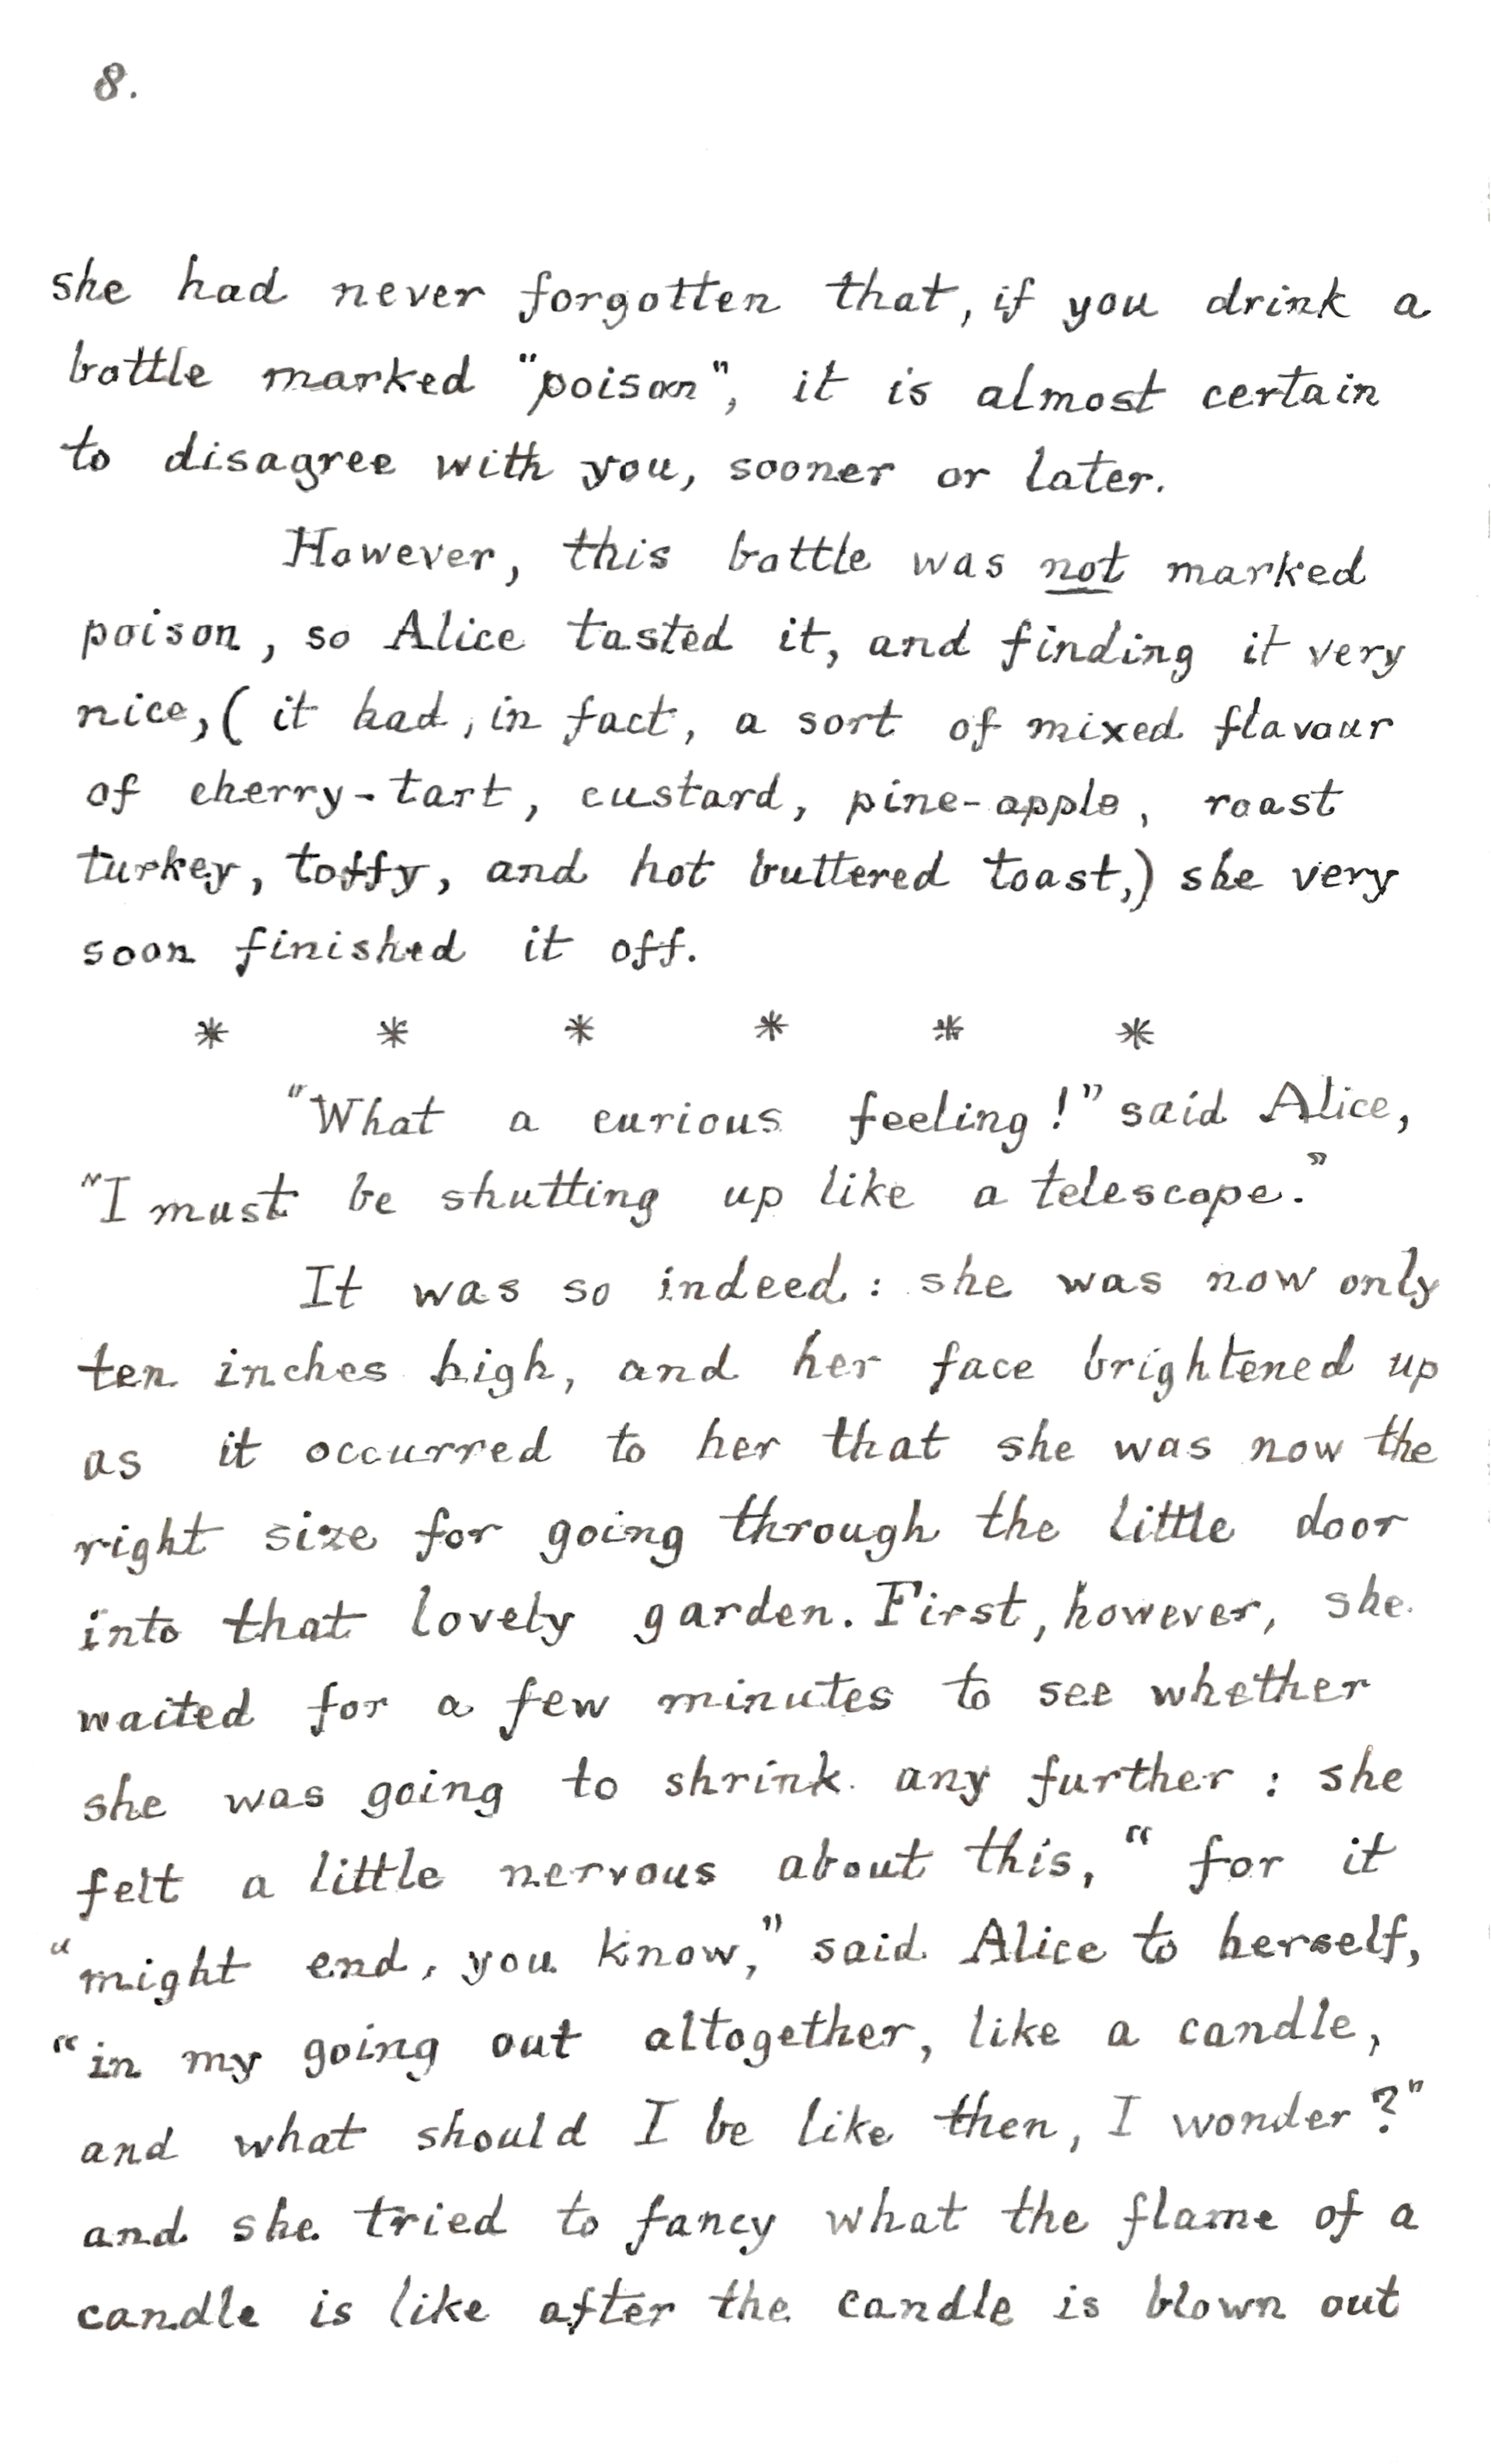 8.
she had never forgotten that, if you drink a
bottle marked "poison", it is almost certain
to disagree with you, sooner or later.
However, this bottle was not marked
poison, so Alice tasted it, and finding it very
nice, (it had, in fact, a sort of mixed flavour
of cherry-tart, custard, pine-apple, roast
turkey, toffy, and hot buttered toast,) she very
soon finished it off.
* * * * * *
"What a curious feeling!" said Alice,
"I must be shutting up like a telescope."
It was so indeed: she was now only
ten inches high, and her face brightened up
as it occurred to her that she was now the
right size for going through the little door
into that lovely garden. First, however, she
waited for a few minutes to see whether
she was going to shrink any further: she
felt a little nervous about this, "for it
"might end, you know," said Alice to herself,
"in my going out altogether, like a candle,
and what should I be like then, I wonder?"
and she tried to fancy what the flame of a
candle is like after the candle is blown out